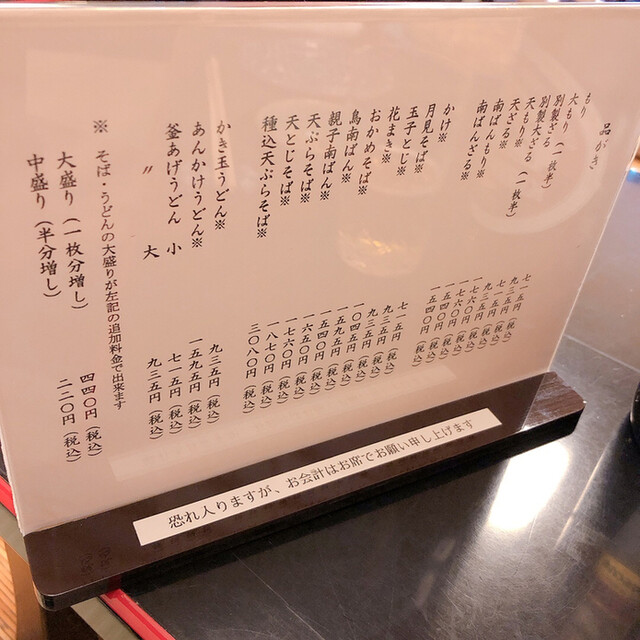 品がき
もり 七一五円(税込)
大もり(一枚半) 九三五円(税込)
別製ざる 七一五円(税込)
別製大ざる(一枚半) 九三五円(税込)
天もり※ 一七六〇円(税込)
天ざる※ 一七六〇円(税込)
南ばんもり※ 一五四〇円(税込)
南ばんざる※ 一五四〇円(税込)
かけ※ 七一五円(税込)
月見そば※ 九三五円(税込)
玉子とじ※ 九三五円(税込)
花まき※ 一〇四五円(税込)
おかめそば※ 一五九五円(税込)
鳥南ばん※ 一五四〇円(税込)
親子南ばん※ 一六五〇円(税込)
天ぷらそば※ 一七六〇円(税込)
天とじそば※ 一八七〇円(税込)
種込天ぷらそば※ 三〇八〇円(税込)
かき玉うどん※ 九三五円(税込)
あんかけうどん※ 一五九五円(税込)
釜あげうどん 小 七一五円(税込)
〃 大 九三五円(税込)
※ そば・うどんの大盛りが左記の追加料金で出来ます
大盛り(一枚分増し) 四四〇円(税込)
中盛り(半分増し) 二二〇円(税込)
恐れ入りますが、お会計はお席でお願い申し上げます